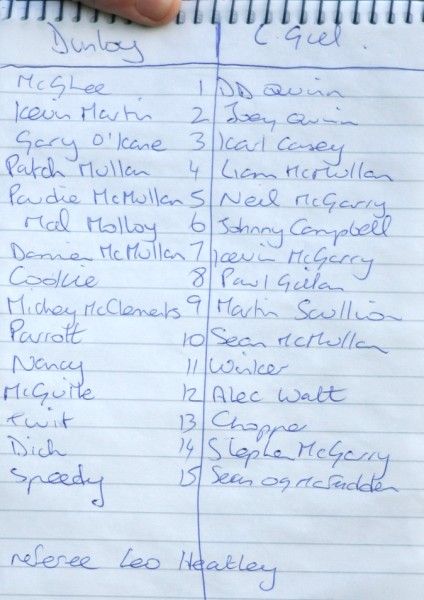 Dunloy C. Guel.
McGhee 1 DD Quinn
Kevin Martin 2 Joey Quinn
Gary O'Kane 3 Karl Casey
Patch Mullan 4 Liam McMullan
Paudie McMullan 5 Neil McGarry
Mal Molloy 6 Johnny Campbell
Damien McMullan 7 Kevin McGarry
Cookie 8 Paul Gillan
Mickey McClements 9 Martin Scullion
Parrott 10 Sean McMullan
Nancy 11 Winker
McGuile 12 Alec Watt
Twit 13 Chopper
Dick 14 Stephen McGarry
Speedy 15 Sean Og McFadden
referee Leo Heatley